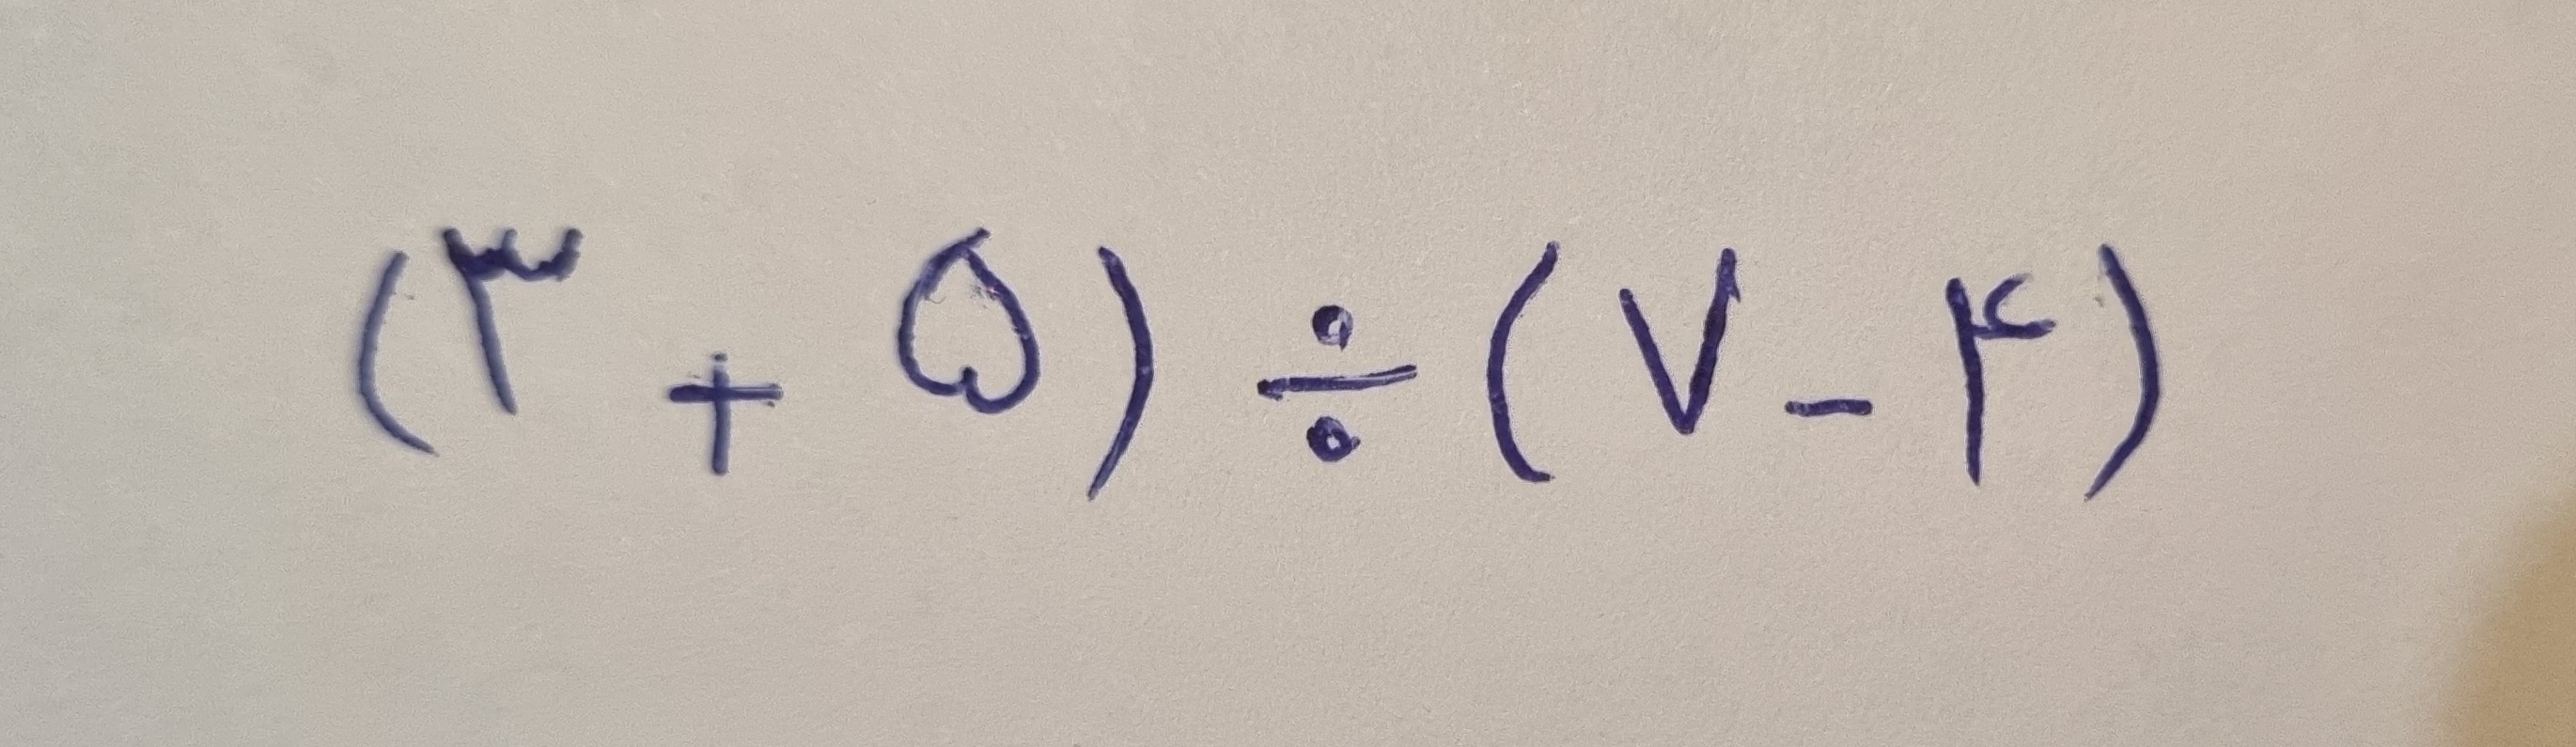 (۳ + ۵) ÷ (۷ - ۴)